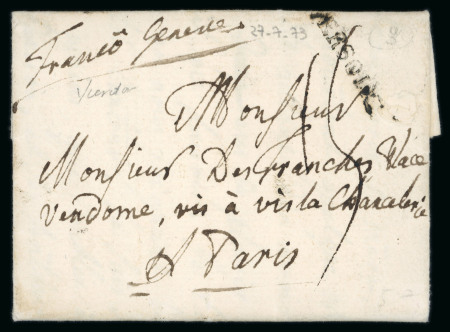 Francô Geneve
27-7-73
VERSOIX
Monsieur
Monsieur DesFranches Place
Vendome, vis à vis la Chancelerie
A Paris